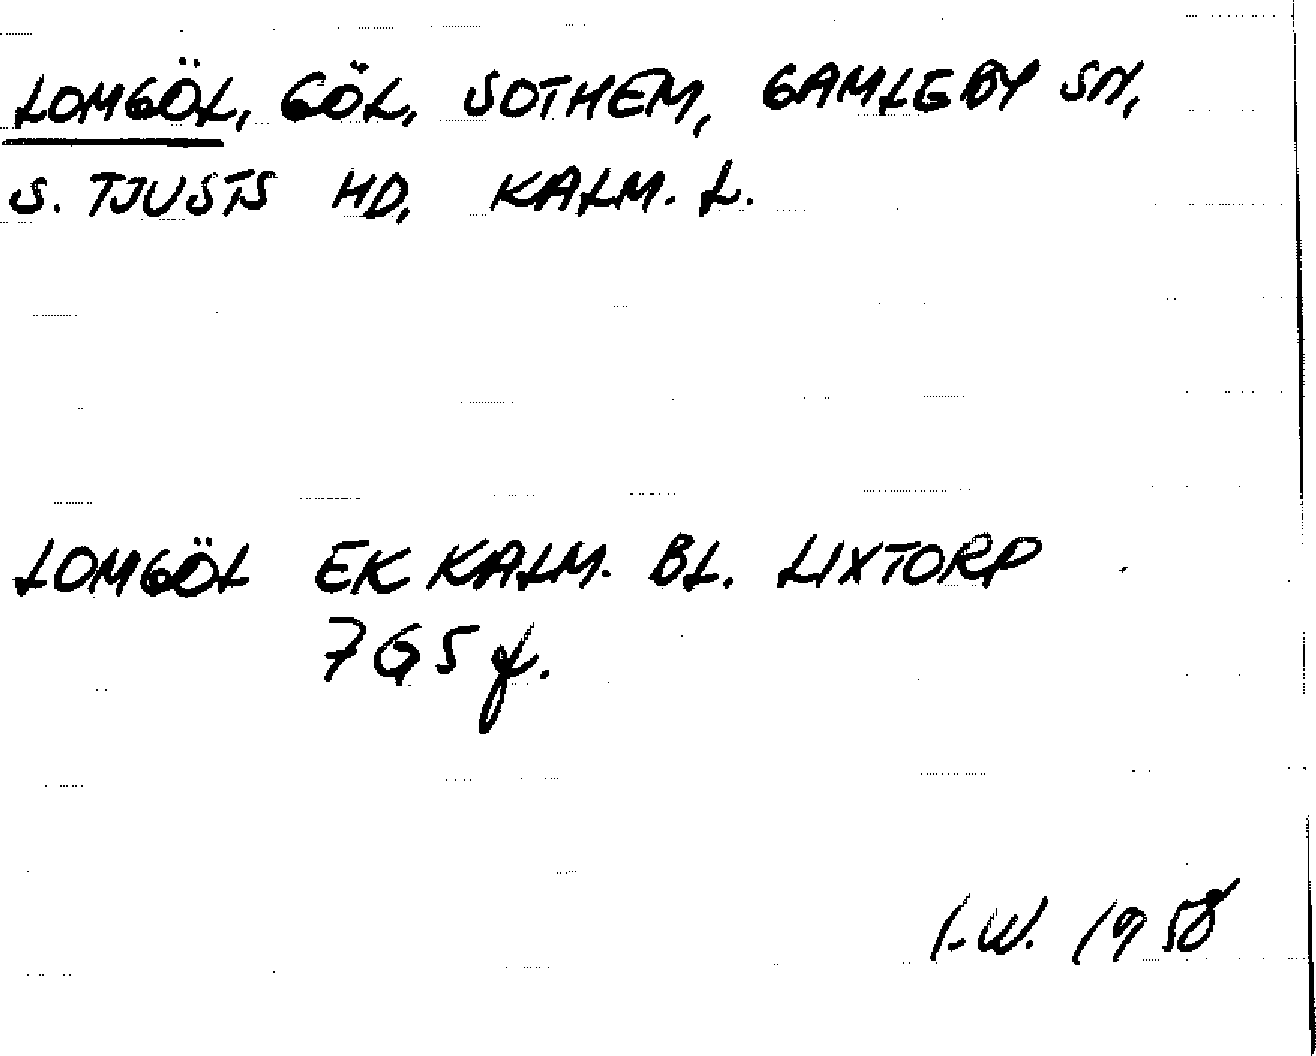 LOMGÖL, GÖL, SOTHEM, GAMLEBY SN,
S. TJUSTS HD, KALM. L.
LOMGÖL EK KALM. BL. LIXTORP
765 f.
I.W. 1958